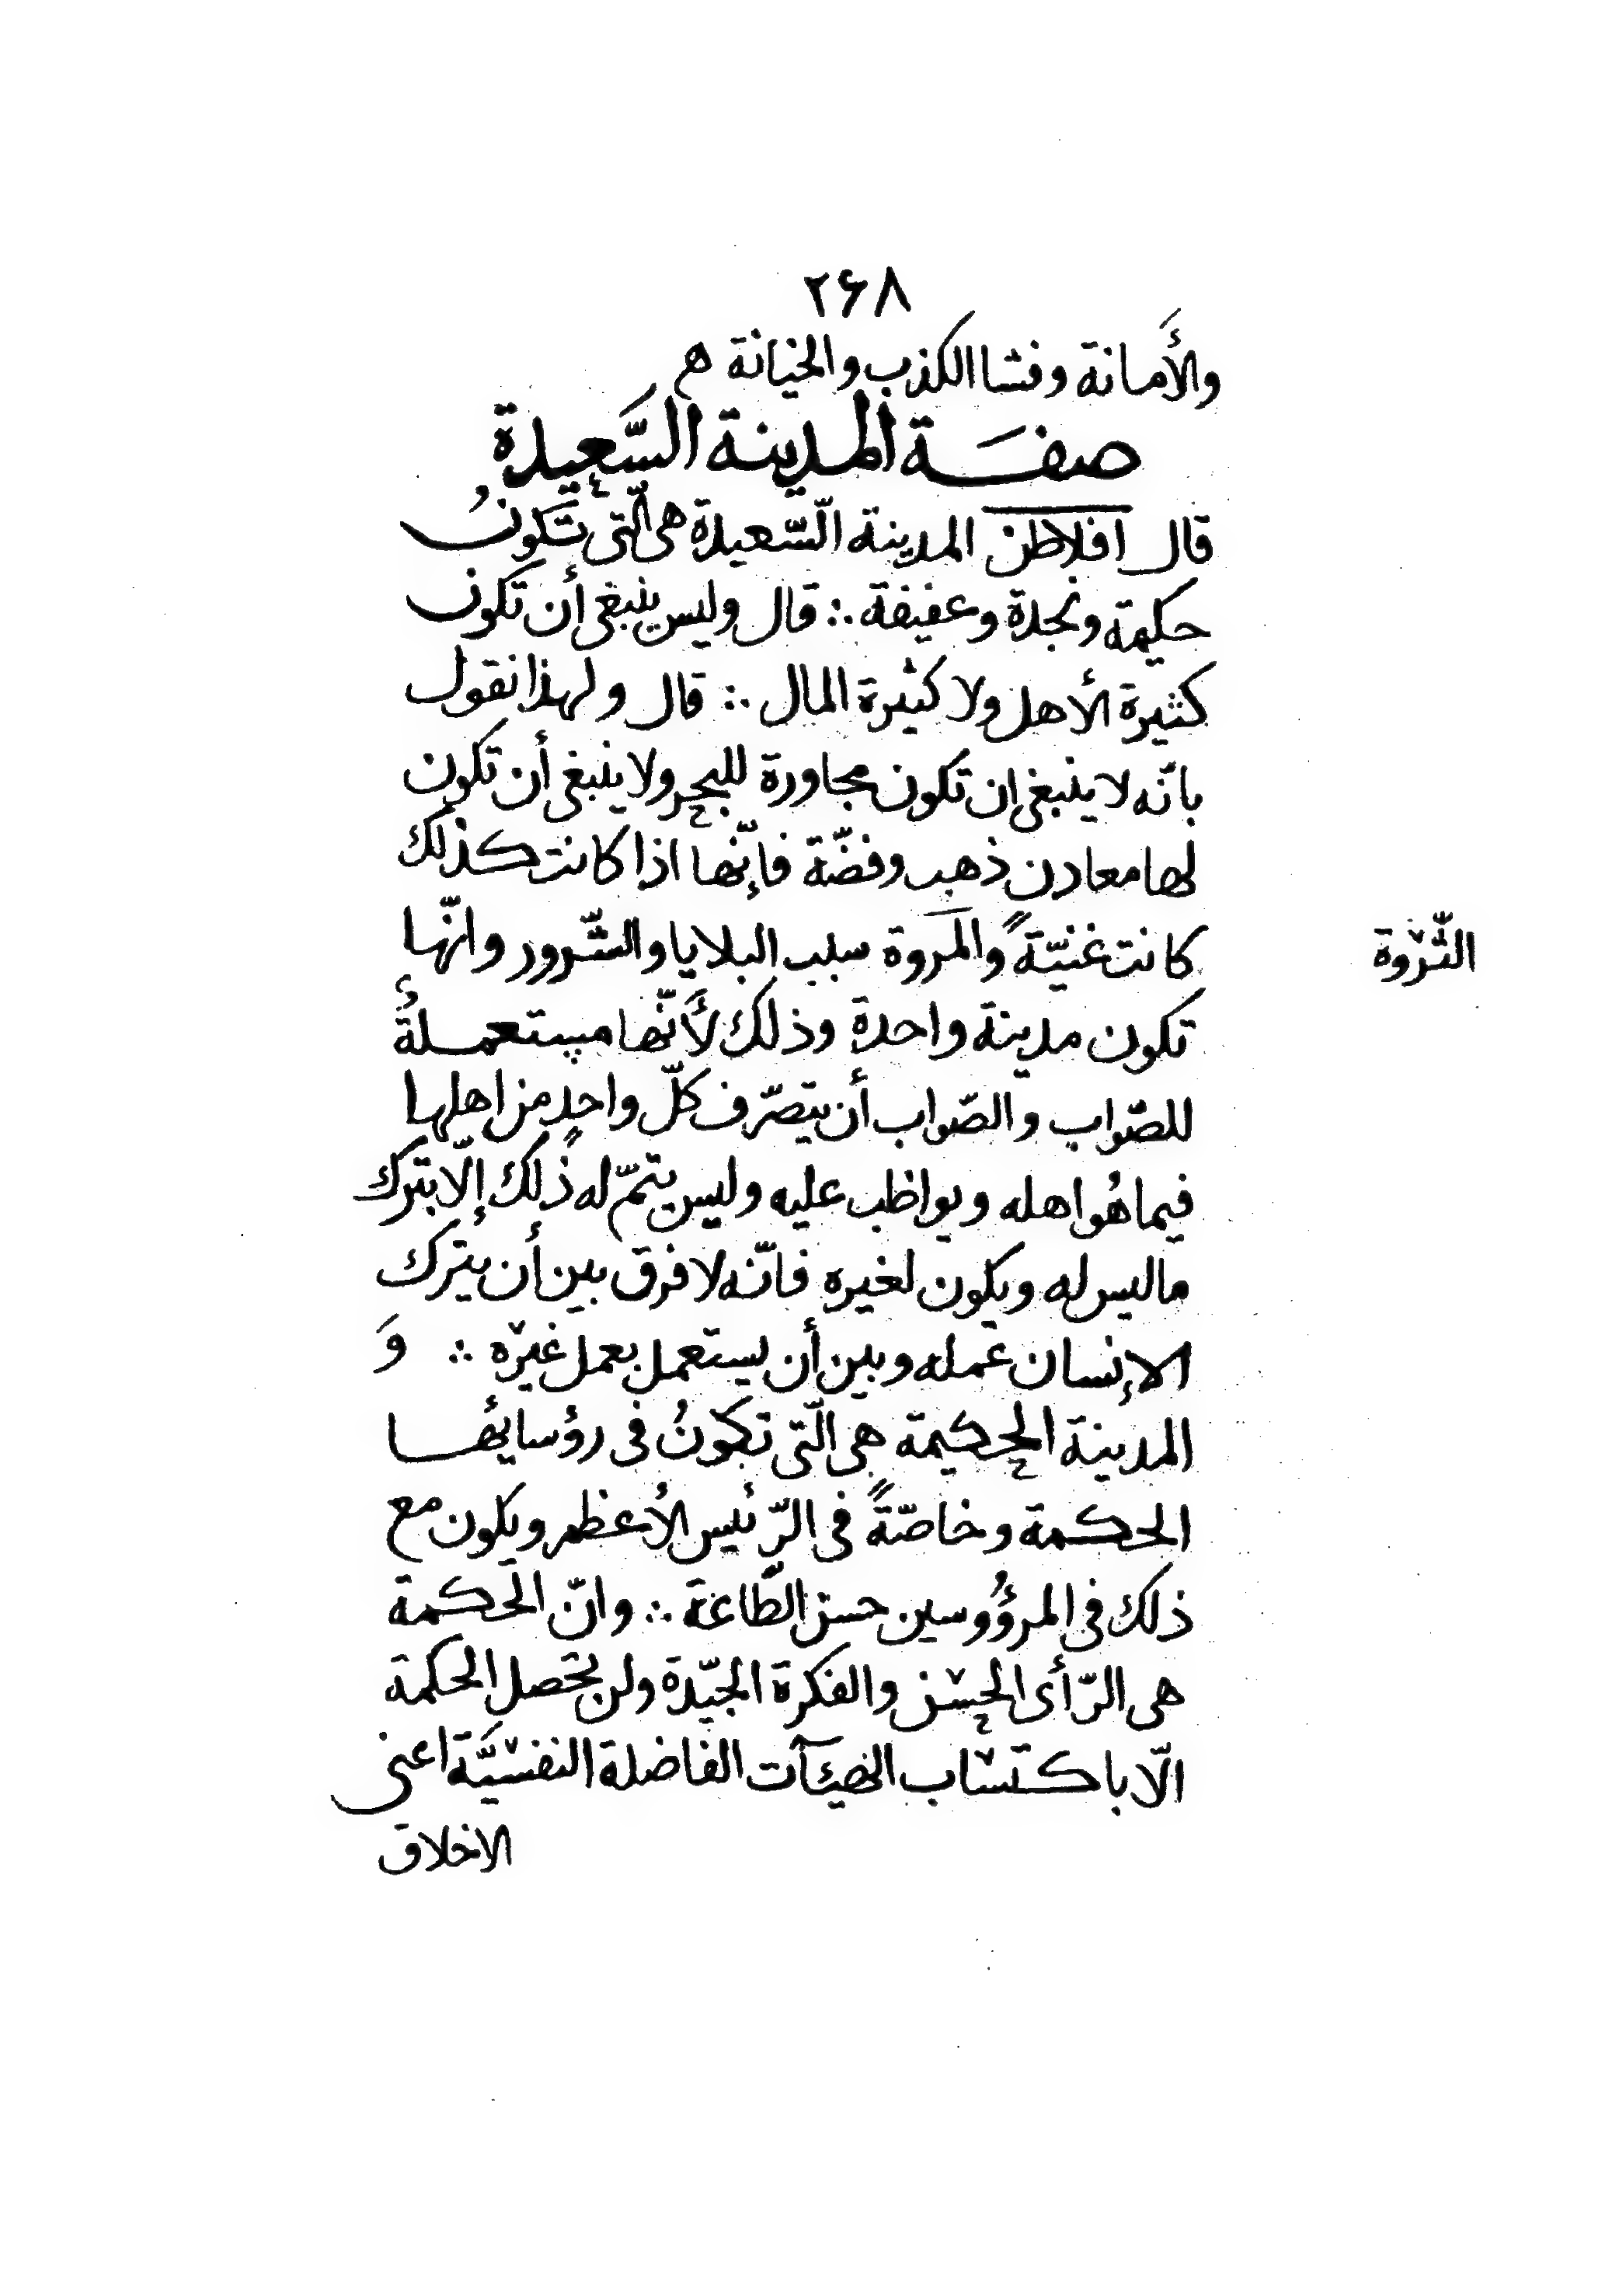 ۲۶۸
والأَمانة وفشا الكذب والخيانة ه
صفَة المدينة السَّعيدة
قال افلاطن المدينة السّعيدة هى الّتى تَكونُ
حكيمة ونجدة وعفيفة ∴ قال وليس ينبغى أن تكون
كثيرة الأهل ولا كثيرة المال ∴ قال ولهذا نقول
بانّه لا ينبغى ان تكون مجاورة للبحر ولا ينبغى أن تكون
لها معادن ذهب وفضّة فإنّها اذا كانت كذلك
كانت غنيّةً والمَروة سبب البلايا والشّرور وانّها
الثَّرْوة
تكون مدينة واحدة وذلك لأَنّها مستعملةُ
للصّواب والصّواب أن يتصرّف كلّ واحدٍ من اهلها
فيما هُو اهله ويواظب عليه وليس يتمّ له ذلك إلّا بترك
ما ليس له ويكون لغيره فانّه لا فرق بين أن يترك
الإنسان عمله وبين أن يستعمل بعمل غيْره ∴ وَ
المدينة الحكيمة هى الّتى تكونُ فى رؤسائها
الحكمة وخاصّةً فى الرّئيس الأعظم ويكون مع
ذلك فى المرؤُوسين حسن الطّاعة ∴ وانّ الحكمة
هى الرّأى الحسْن والفكرة الجيّدة ولن تحصل الحكمة
الّا باكتسْاب الهيئآت الفاضلة النفسْيَّة اعنى
الاخلاق